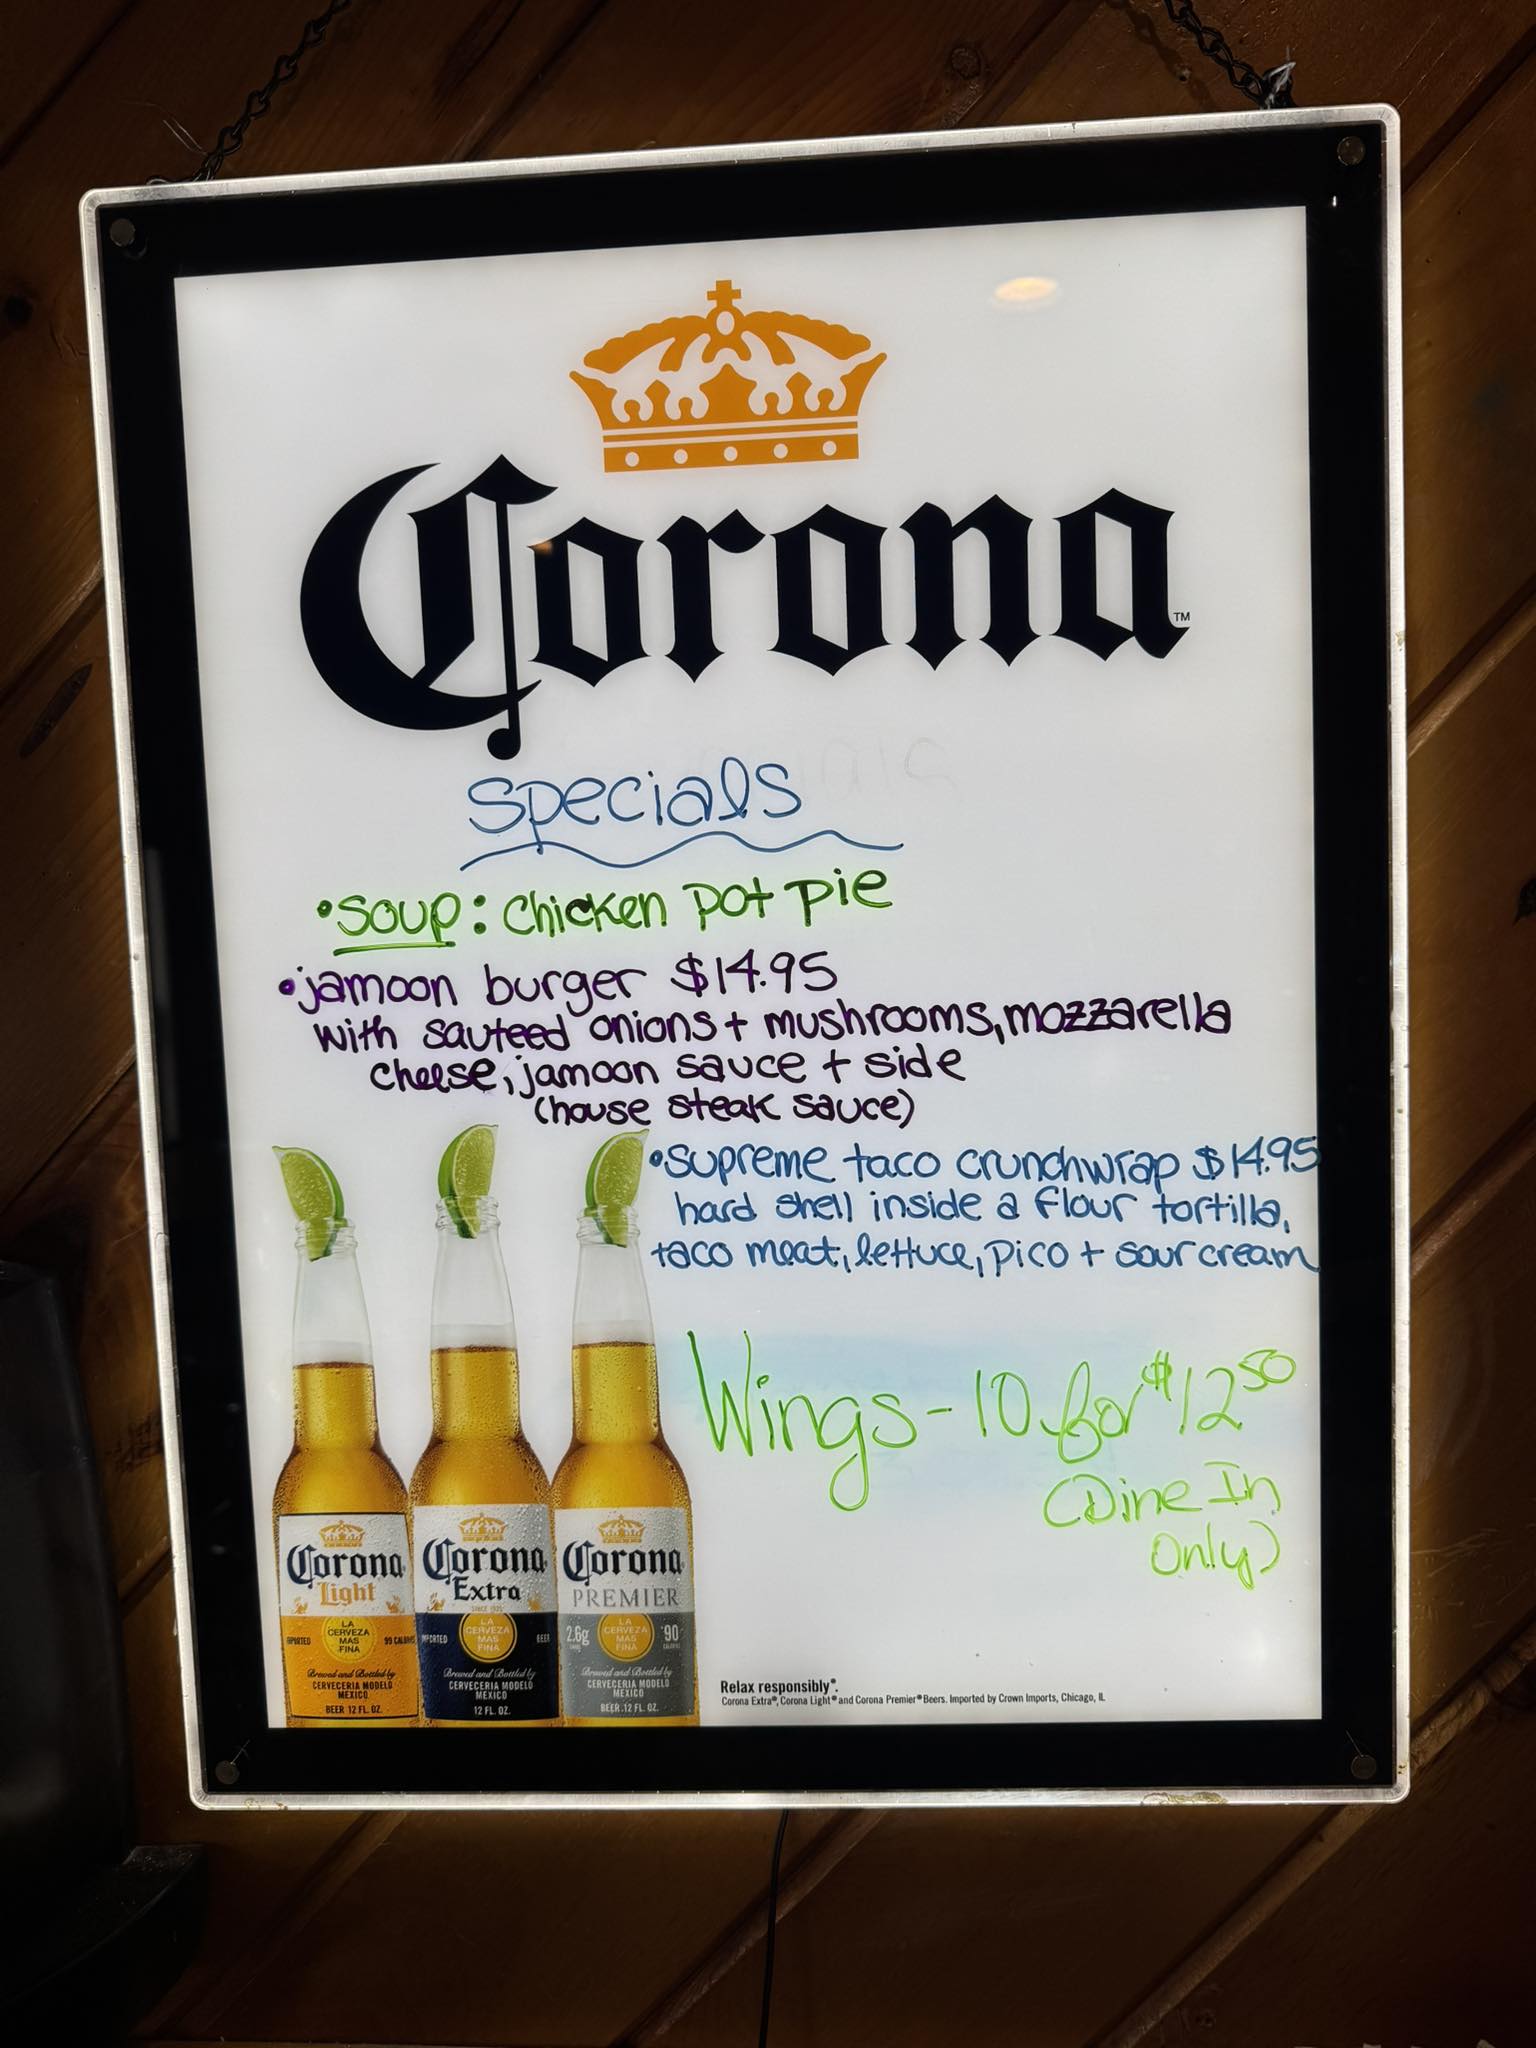 Corona™
Specials
•Soup: Chicken Pot Pie
•jamoon burger $14.95
with sauteed onions + mushrooms, mozzarella
cheese, jamoon sauce + side
(house steak sauce)
•supreme taco crunchwrap $14.95
hard shell inside a flour tortilla,
taco meat, lettuce, pico + sour cream
Wings - 10 for $12 50
(Dine In
Only)
Corona
Light
LA
CERVEZA
MAS
FINA
IMPORTED
99 CALORIES
Brewed and Bottled by
CERVECERIA MODELO
MEXICO
BEER 12 FL. OZ.
Corona
Extra
SINCE 1925
LA
CERVEZA
MAS
FINA
IMPORTED
BEER
Brewed and Bottled by
CERVECERIA MODELO
MEXICO
12 FL. OZ.
Corona
PREMIER
2.6g
CARBS
LA
CERVEZA
MAS
FINA
90
CALORIES
Brewed and Bottled by
CERVECERIA MODELO
MEXICO
BEER 12 FL. OZ.
Relax responsibly®.
Corona Extra®, Corona Light® and Corona Premier® Beers. Imported by Crown Imports, Chicago, IL